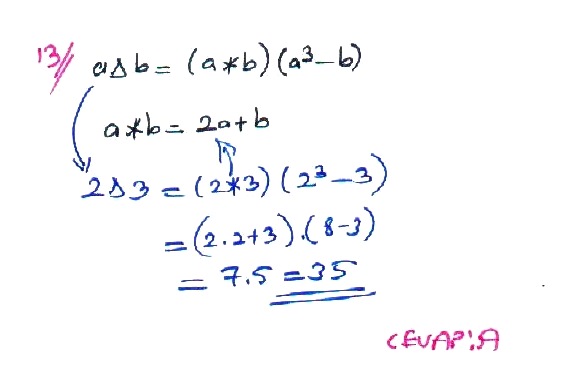 13// a△b = (a*b)(a³-b)
a*b = 2a+b
2△3 = (2*3)(2³-3)
= (2.2+3).(8-3)
= 7.5 = 35
CEVAP:A